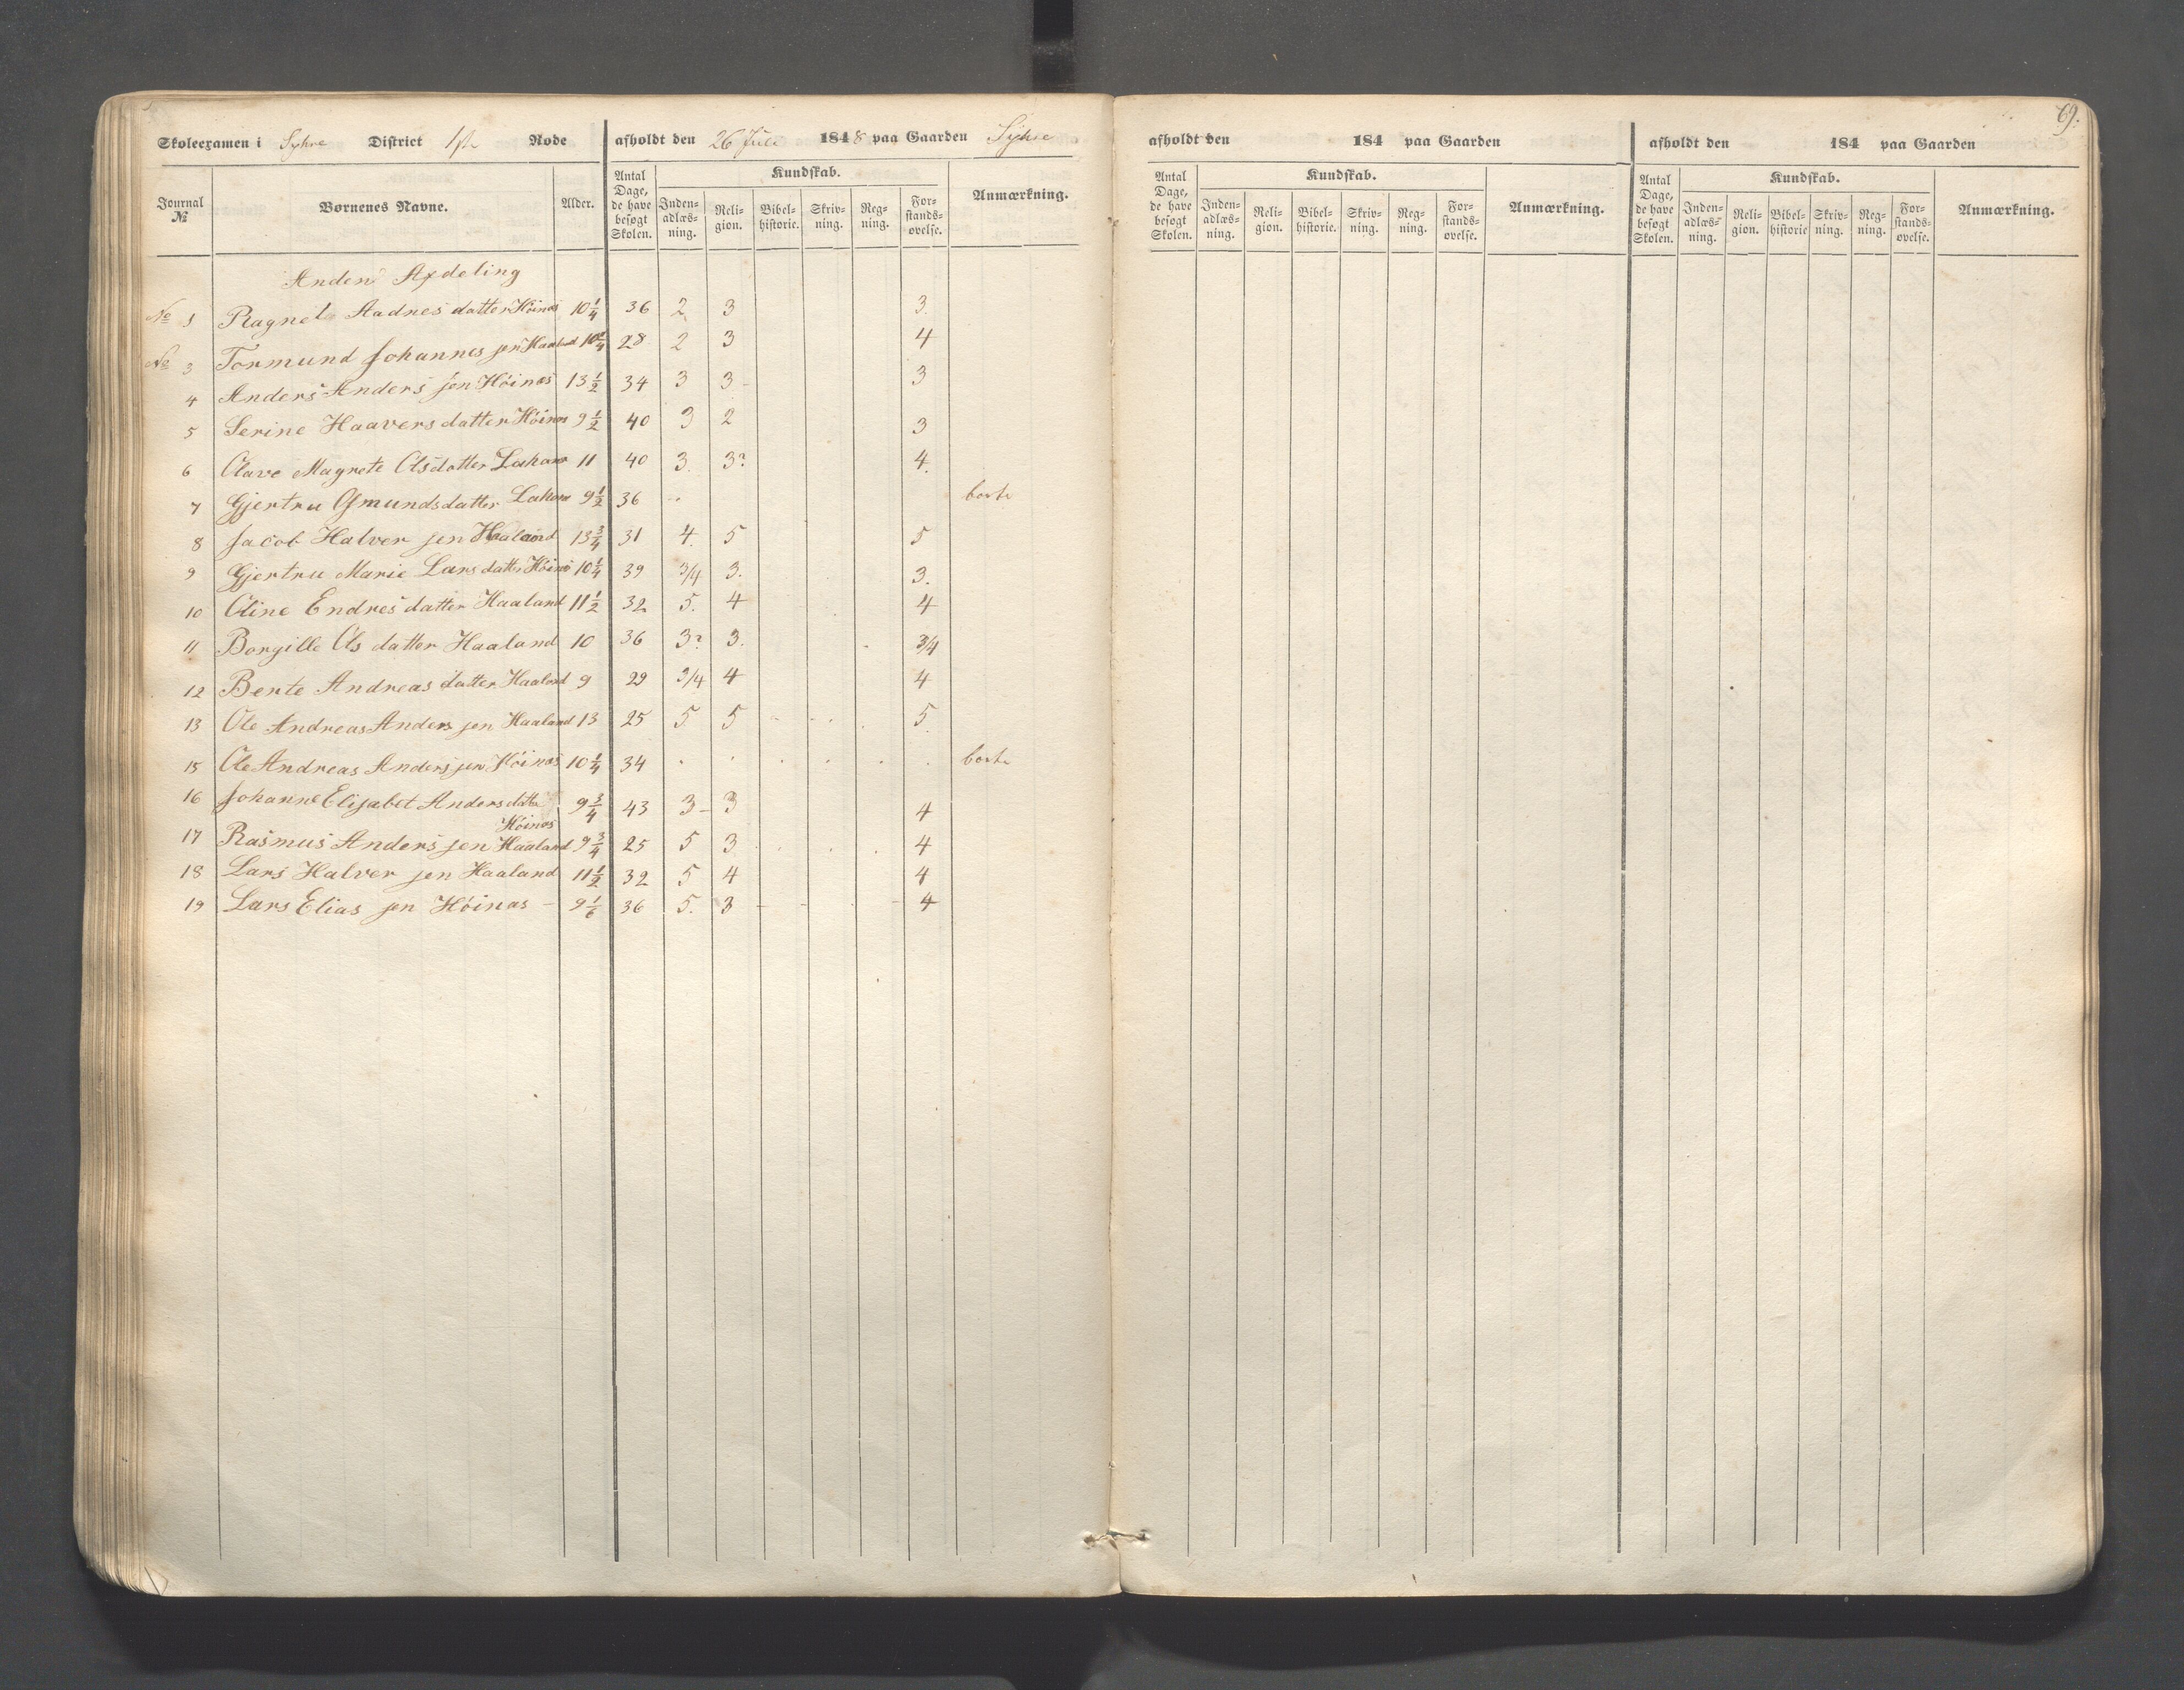 69.
Skoleexamen i Syhre District 1ste Rode afholdt den 26 Juli 1848 paa Gaarden Syhre
Journal № Børnenes Navne. Alder. Antal Dage, de have besøgt Skolen. Kundskab. Indenadlæsning. Religion. Bibelhistorie. Skrivning. Regning. Forstandsøvelse. Anmærkning.
Anden Afdeling
№ 1 Ragnela Aadnes datter Höinæs 10 1/4 36 2 3 3.
№ 3 Tormund Johannes sen Haaland 28 2 3 4
4 Anders Anders sen Höinæs 13 1/2 34 3 3 - 3
5 Serine Haavers datter Höinæs 9 1/2 40 3 2 3
6 Olave Magrete Olsdatter 11 40 3. 3? 4.
7 Gjertru Osmundsdatter 9 1/2 36 borte
8 Jacob Halver sen Haaland 13 3/4 31 4. 5 5
9 Gjertru Marie Lars datter Höinæs 10 1/4 39 3/4 3. 3.
10 Oline Endres datter Haaland 11 1/2 32 5. 4 4
11 Borgille Ols datter Haaland 10 36 3? 3. 3/4
12 Berte Andreas datter Haaland 9 29 3/4 4 4
13 Ole Andreas Anders sen Haaland 13 25 5 5 5
15 Ole Andreas Anders sen Höinæs 10 1/4 34 borte
16 Johanne Elisabet Anders datter 9 3/4 43 3 - 3 4
Höinæs
17 Rasmus Anders sen Haaland 9 3/4 25 5 3 4
18 Lars Halver sen Haaland 11 1/2 32 5 4 4
19 Lars Elias sen Höinæs - 9 1/6 36 5. 3 4
afholdt den 184 paa Gaarden
Antal Dage, de have besøgt Skolen. Kundskab. Indenadlæsning. Religion. Bibelhistorie. Skrivning. Regning. Forstandsøvelse. Anmærkning.
afholdt den 184 paa Gaarden
Antal Dage, de have besøgt Skolen. Kundskab. Indenadlæsning. Religion. Bibelhistorie Skrivning. Regning. Forstandsøvelse. Anmærkning.